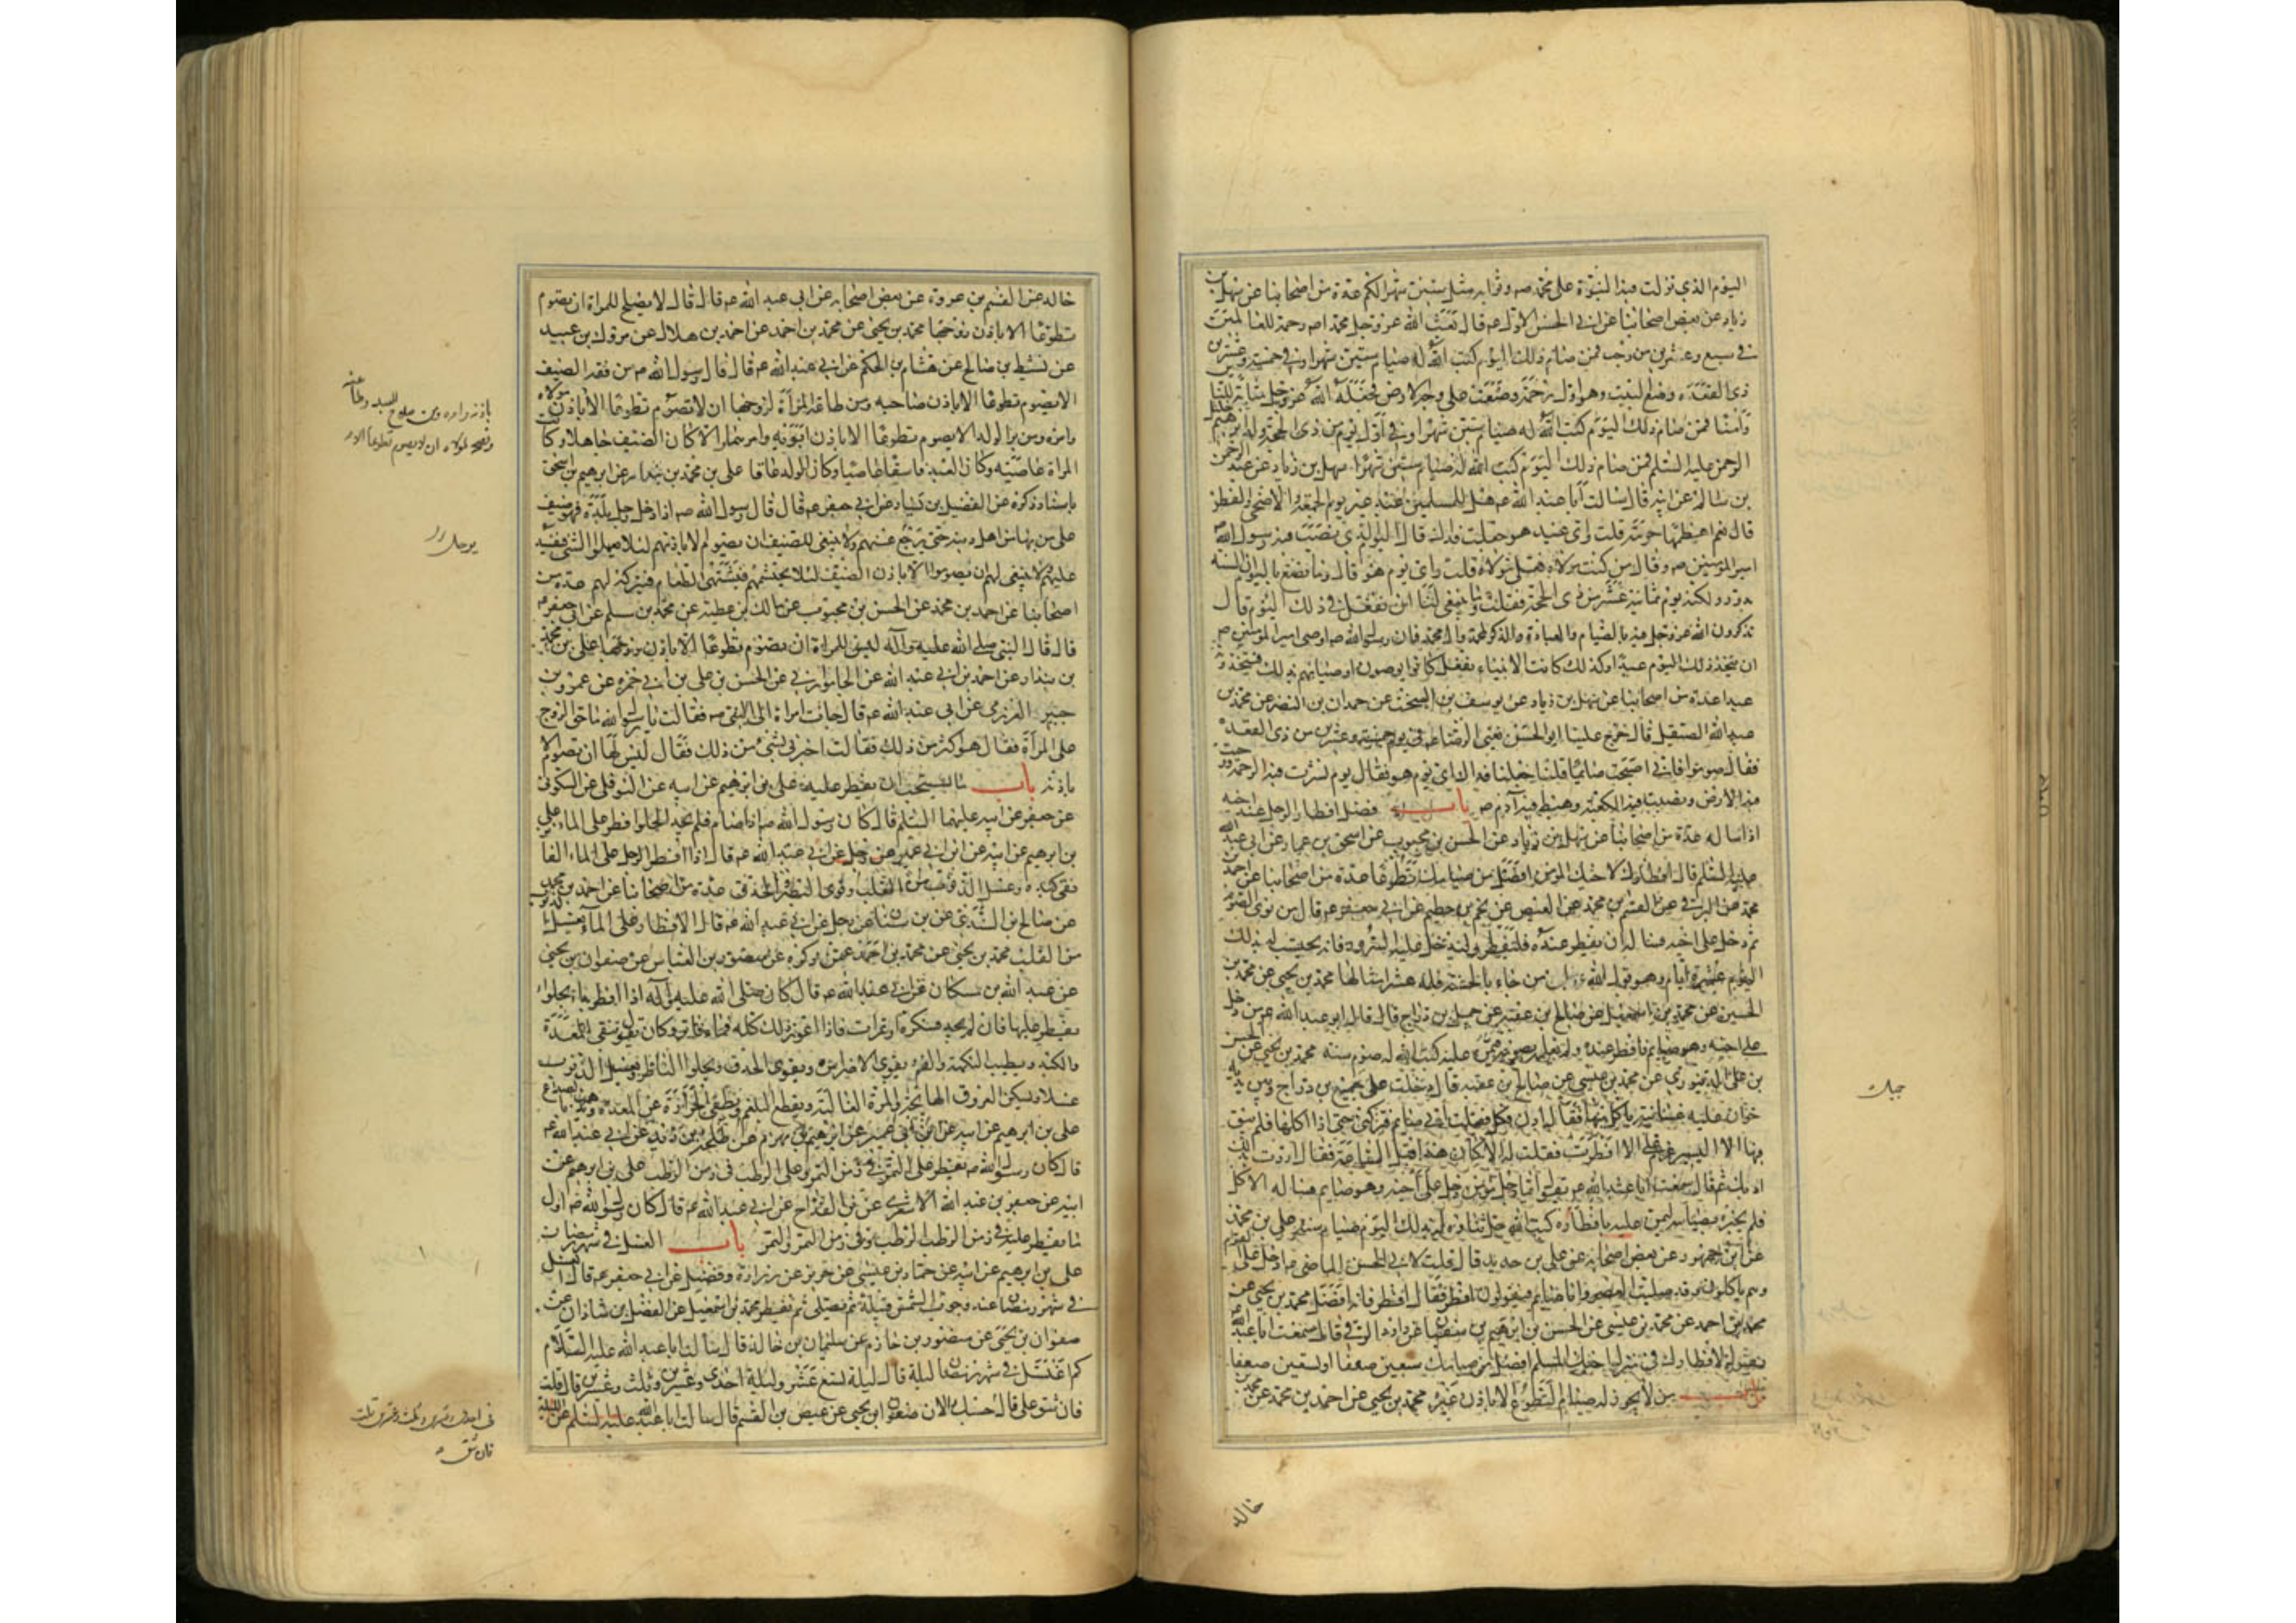 اليوم الذي نزلت فيه النبوة على محمد صه وثوابه مثل ستين شهرا لكم عدة من اصحابنا عن سهل بن
زياد عن بعض اصحابنا عن ابي الحسن الاول عه قال بعث الله عز وجل محمدا صه رحمة للعالمين
في سبع وعشرين من رجب فمن صام ذلك اليوم كتب الله له صيام ستين شهرا وفي خمسة وعشرين
ذي القعدة وضع البيت وهو اول رحمة وضعت على وجه الارض فجعله الله عز وجل مثابة للناس
وامنا فمن صام ذلك اليوم كتب الله له صيام ستين شهرا وفي اول يوم من ذي الحجة ولد ابرهيم خليل
الرحمن عليه السلم فمن صام ذلك اليوم كتب الله له صيام ستين شهرا سهل بن زياد عن عبد الرحمن
بن سالم عن ابيه قال سالت ابا عبد الله عه هل للمسلمين عيد غير يوم الجمعة والاضحى والفطر
قال نعم اعظمها حرمة قلت واي عيد هو جعلت فداك قال اليوم الذي نصب فيه رسول الله صه
امير المؤمنين عه وقال من كنت مولاه فعلي مولاه قلت واي يوم هو قال وما تصنع باليوم ان السنة
تدور ولكنه يوم ثمانية عشر من ذي الحجة فقلت وما ينبغي لنا ان نفعل في ذلك اليوم قال
تذكرون الله عز وجل فيه بالصيام والعبادة والذكر لمحمد وال محمد فان رسول الله صه اوصى امير المؤمنين عه
ان يتخذ ذلك اليوم عيدا وكذلك كانت الانبياء تفعل كانوا يوصون اوصيائهم بذلك فيتخذونه
عيدا عدة من اصحابنا عن سهل بن زياد عن يوسف بن السخت عن حمدان بن النضر عن محمد بن
عبد الله الصيقل قال خرج علينا ابو الحسن يعني الرضا عه في يوم خمسة وعشرين من ذي القعدة
فقال صوموا فاني اصبحت صائما قلنا جعلنا فداك اي يوم هو فقال يوم نشرت فيه الرحمة ودحيت
فيه الارض ونصبت فيه الكعبة وهبط فيه آدم عه باب فضل افطار الرجل عند اخيه
اذا ساله عدة من اصحابنا عن سهل بن زياد عن الحسن بن محبوب عن اسحق بن عمار عن ابي عبد الله
عليه السلم قال افطارك لاخيك المؤمن افضل من صيامك تطوعا عدة من اصحابنا عن احمد بن
محمد عن البرقي عن القسم بن محمد عن العيص عن نجم بن حطيم عن ابي جعفر عه قال من نوى الصوم
ثم دخل على اخيه فساله ان يفطر عنده فليفطر وليدخل عليه السرور فانه يحتسب له بذلك
اليوم عشرة ايام وهو قول الله من جاء بالحسنة فله عشر امثالها محمد بن يحيى عن محمد بن
الحسين عن محمد بن اسمعيل عن صالح بن عقبة عن جميل بن دراج قال قال ابو عبد الله عه من دخل
على اخيه وهو صايم فافطر عنده ولم يعلمه بصومه فيمن عليه كتب الله له صوم سنة محمد بن يحيى عن الحسن
بن علي الدينوري عن محمد بن عيسى عن صالح بن عقبة قال دخلت على جميل بن دراج وبين يديه
خوان عليه غسانية ياكل منها فقال ادن فكل فقلت اني صايم فتركني حتى اذا اكلها فلم يبق
منها الا اليسير عزم علي الا افطرت فقلت له الا كان هذا قبل الساعة فقال اردت بذلك
ادبك ثم قال سمعت ابا عبد الله عه يقول ايما رجل مؤمن دخل على اخيه وهو صايم فساله الاكل
فلم يخبره بصيامه ليمن عليه بافطاره كتب الله جل ثناؤه له بذلك اليوم صيام سنة علي بن محمد
عن ابن جمهور عن بعض اصحابه عن علي بن حديد قال قلت لابي الحسن الماضي عه ادخل على القوم
وهم ياكلون وقد صليت العصر وانا صايم فيقولون افطر فقال افطر فانه افضل محمد بن يحيى عن
محمد بن احمد عن محمد بن عيسى عن الحسن بن ابرهيم بن سفين عن داود الرقي قال سمعت ابا عبد الله عه
يقول لافطارك في منزل اخيك المسلم افضل من صيامك سبعين ضعفا او تسعين ضعفا
باب من لا يجوز له صيام التطوع الا باذن غيره محمد بن يحيى عن احمد بن محمد عن محمد بن
خالد
جبلت
خالد عن القسم بن عروة عن بعض اصحابه عن ابي عبد الله عه قال قال لا يصلح للمراة ان تصوم
تطوعا الا باذن زوجها محمد بن يحيى عن محمد بن احمد عن احمد بن هلال عن مروك بن عبيد
عن نشيط بن صالح عن هشام بن الحكم عن ابي عبد الله عه قال قال رسول الله صه من فقه الضيف
الا يصوم تطوعا الا باذن صاحبه ومن طاعة المراة لزوجها ان لا تصوم تطوعا الا باذن مولاه
وامره ومن بر الولد الا يصوم تطوعا الا باذن ابويه وامرهما والا كان الضيف جاهلا وكا
المراة عاصية وكان العبد فاسقا عاصيا وكان الولد عاقا علي بن محمد بن بندار عن ابرهيم بن اسحق
باسناد ذكره عن الفضيل بن يسار عن ابي جعفر عه قال قال رسول الله صه اذا دخل رجل بلدة فهو ضيف
على من بها من اهل دينه حتى يرجع عنهم ولا ينبغي للضيف ان يصوم الا باذنهم لئلا يعملوا الشئ فيفسد
عليهم ولا ينبغي لهم ان يصوموا الا باذن الضيف لئلا يحتشمهم فيشتهى الطعام فيتركه لهم عدة من
اصحابنا عن احمد بن محمد عن الحسن بن محبوب عن مالك بن عطية عن محمد بن مسلم عن ابي جعفر عه
قال قال النبي صلى الله عليه وآله ليس للمراة ان تصوم تطوعا الا باذن زوجها علي بن محمد
بن بندار عن احمد بن ابي عبد الله عن الجاموراني عن الحسن بن علي بن ابي حمزه عن عمرو بن
جبير العزرمي عن ابي عبد الله عه قال جاءت امراة الى النبي صه فقالت يا رسول الله ما حق الزوج
على المرأة فقال هو اكثر من ذلك فقالت اخبرني بشئ من ذلك فقال ليس لها ان تصوم الا
باذنه باب ما يستحب ان يفطر عليه علي بن ابرهيم عن ابيه عن النوفلي عن السكوني
عن جعفر عن ابيه عليهما السلم قال كان رسول الله صه اذا صام فلم يجد الحلوا افطر على الماء علي
بن ابرهيم عن ابيه عن ابن ابي عمير عن رجل عن ابي عبد الله عه قال اذا افطر الرجل على الماء الفاتر
نقى كبده وغسل الذنوب من القلب وقوى النظر والحدق عدة من اصحابنا عن احمد بن محمد
عن صالح بن السندي عن ابن سنان عن رجل عن ابي عبد الله عه قال الافطار على الماء يغسل الذنوب
من القلب محمد بن يحيى عن محمد بن احمد عمن ذكره عن منصور بن العباس عن صفوان بن يحيى
عن عبد الله بن مسكان عن ابي عبد الله عه قال كان صلى الله عليه وآله اذا افطر بدا بحلواء
يفطر عليها فان لم يجد فسكرة او تمرات فاذا اعوز ذلك كله فماء فاتر وكان يقول ينقي المعدة
والكبد ويطيب النكهة والفم ويقوي الاضراس ويقوي الحدق ويجلوا الناظر ويغسل الذنوب
غسلا ويسكن العروق الهائجة والمرة الغالبة ويقطع البلغم ويطفي الحرارة عن المعدة ويذهب بالصداع
علي بن ابرهيم عن ابيه عن ابن ابي عمير عن ابرهيم بن مهزم عن طلحة بن زيد عن ابي عبد الله عه
قال كان رسول الله صه يفطر على التمر في زمن التمر وعلى الرطب في زمن الرطب علي بن ابرهيم عن
ابيه عن جعفر بن عبد الله الاشعري عن ابن القداح عن ابي عبد الله عه قال كان رسول الله صه اول
ما يفطر عليه في زمن الرطب الرطب وفي زمن التمر التمر باب الغسل في شهر رمضان
علي بن ابرهيم عن ابيه عن حماد بن عيسى عن حريز عن زرارة وفضيل عن ابي جعفر عه قال الغسل
في شهر رمضان عند وجوب الشمس قبيله ثم يصلي ثم يفطر محمد بن اسمعيل عن الفضل بن شاذان عن
صفوان بن يحيى عن منصور بن حازم عن سليمان بن خالد قال سالت ابا عبد الله عليه السلام
كم اغتسل في شهر رمضان ليلة قال ليلة تسع عشر وليلة احدى وعشرين وثلث وعشرين قال قلت
فان شق علي قال حسبك الان صفوان بن يحيى عن عيص بن القسم قال سالت ابا عبد الله عليه السلم عن الليلة